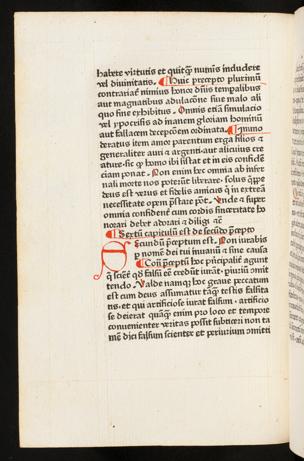 habere virtutis et quitq̄ numīs indudere
vel diuinitatis. ¶ Huic precepto plurimū
contrariat̉ nimius honor dn̄is tempalibus
aut magnatibus adulac̄one siue malo ali
quo fine exhibitus. Omnis etiā simulacio
vel ypocrisis ad inanem gloriam hominū
aut fallacem decepc̄onem ordinata. ¶ Immo
deratus item amor parentum erga filios &
generaliter auri & argenti aut alicuius cre
ature sic q̄ homo ibi sistat et in eis confidē
ciam ponat. Non enim hec omnia ab infer
nali morte nos poterūt liberare. solus q̄ppe
deus est verus et fidelis amicus q̄ in extrēa
necessitate opem p̄stare pōt. Unde & super
omnia confidenē cum cordis sinceritate ho
norari debet adorari & diligi
¶ Sextū capitulū est de secūdo p̄cepto
Secundū p̄ceptum est. Non iurabis
p nomē dei tui inuanū & sine causa
¶ Contͣ p̄ceptū hoc p̄ncipalit̉ agunt
q̄ sciēt̉ qd̄ falsū eē credūt iurāt. piuriū
tendo. Valde namq̄ hoc graue peccatum
est cum deus assumatur tāq̄ testis falsita
tis. et qui artificiose iurat falsum. artificio
se deierat quāq̄ enim pro loco et tempore
conuenienter veritas possit subticeri non ta
mē dici falsum scienter et periurium